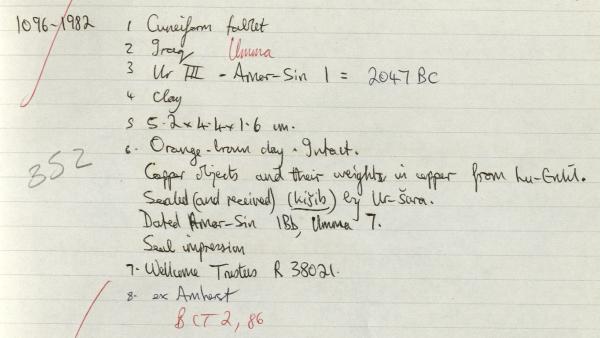 1096-1982 1 Cuneiform tablet
2 Iraq Umma
3 Ur III - Amar-Sin 1 = 2047 BC
4 Clay
5 5.2 x 4.4 x 1.6 cm.
6. Orange-brown clay. Intact.
352
Copper objects and their weights in copper from Lu-Enlil.
Sealed (and received) (kišib) by Ur-Šara.
Dated Amar-Sin 1Bb, Umma 7.
Seal impression
7. Wellcome Trustees R 38021.
8. ex Amherst
BCT 2, 86